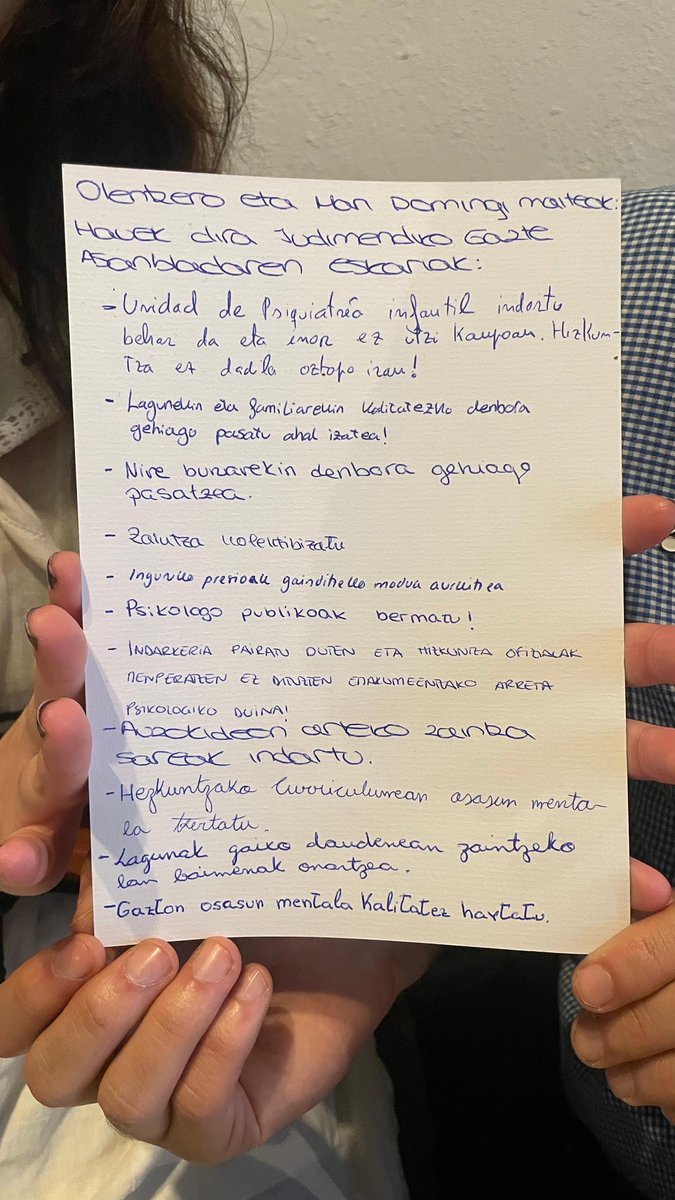 Olentzero eta Mari Domingi maiteok:
Hauek dira Judimendiko Gazte
Asanbladaren eskariak:
- Unidad de Psiquiatría infantil indartu
behar da eta inor ez utzi kanpoan. Hizkun-
tza ez dadila oztopo izan!
- Lagunekin eta familiarekin kalitatezko denbora
gehiago pasatu ahal izatea!
- Nire buruarekin denbora gehiago
pasatzea.
- Zaintza kolektibizatu
- Inguruko presioak gainditzeko modua aurkitzea
- Psikologo publikoak bermatu!
- INDARKERIA PAIRATU DUTEN ETA HIZKUNTZA OFIZIALAK
MENPERATZEN EZ DITUZTEN EMAKUMEENTZAKO ARRETA
PSIKOLOGIKO DUINA!
- Auzokideon arteko zaintza
sareak indartu.
- Hezkuntzako Curriculumean osasun menta-
la txertatu.
- Lagunak gaixo daudenean zaintzeko
lan baimenak onartzea.
- Gazton osasun mentala kalitatez hartatu.